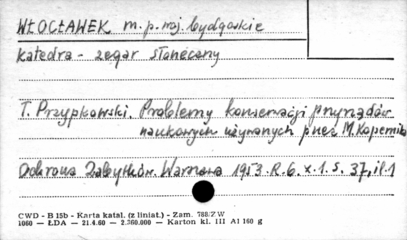 WŁOCŁAWEK m.p. woj. bydgoskie
katedra - zegar słoneczny
T. Przypkowski. Problemy konserwacji przyrządów
naukowych używanych przez M. Kopernika
Ochrona Zabytków. Warszawa 1953. R. 6. z. 1. s. 37, il. 1
CWD - B 15b - Karta katal. (z liniat.) - Zam. 788/Z W
1060 — ŁDA — 21.4.60 — 2.360.000 — Karton kl. III A1 160 g